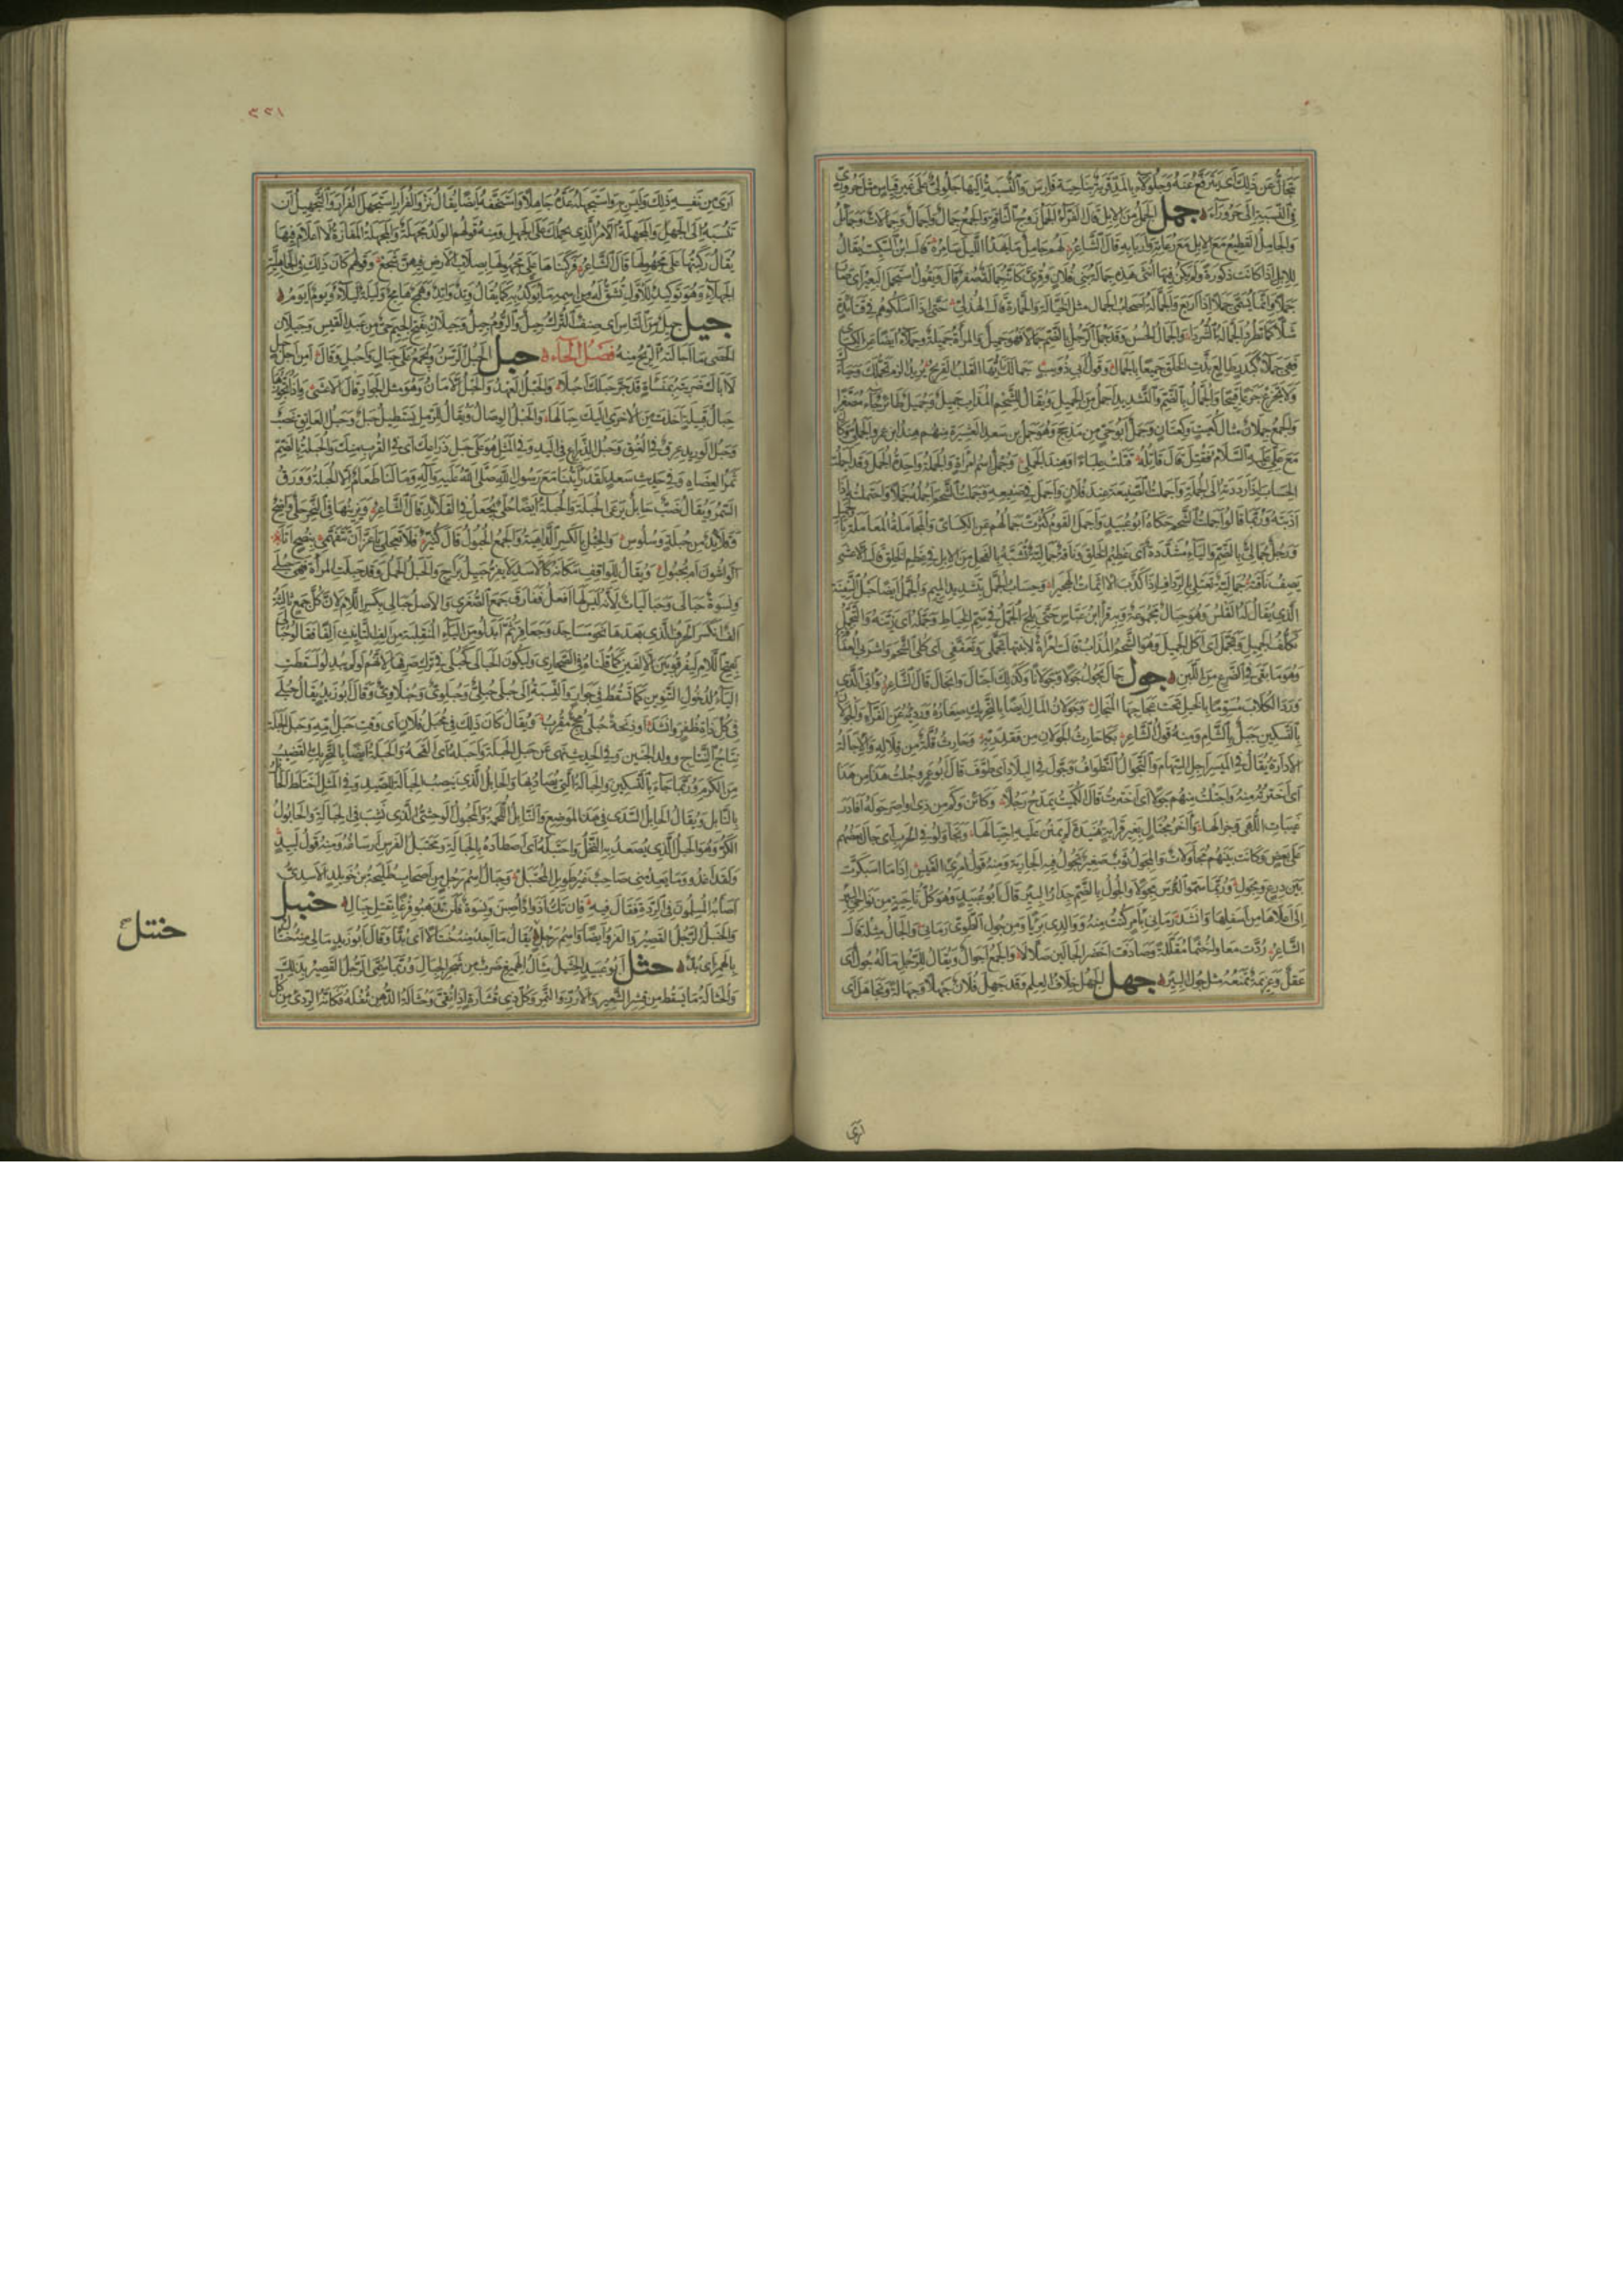 يتجالّ عن ذلك أى يترفّع عنه وجلولاء بالمدّ قرية بناحية فارس والنسبة اليها جلولىّ على غير قياس مثل حرورىّ
فى النسبة الى حروراء جمل الجمل من الابل قال الفرّاء الجمل زوج الناقة والجمع جمال وأجمال وجمالات وجمائل
والجامل القطيع مع الابل مع رعاته وأربابه قال الشاعر لهم جامل ما يهدأ الليل سامره قال ابن السكيت يقال
للابل اذا كانت ذكورة ولم يكن فيها أنثى هذه جمالة بنى فلان وقرئ كأنه جمالة صفر قال ويقول استجمل البعير أى صار
جملا وانما يسمّى جملا اذا أربع والجمّالة أصحاب الجمال مثل الخيّالة والحمّارة قال الهذلىّ حتى اذا أسلكوهم فى قتائدة
شلّا كما تطرد الجمّالة الشردا والجمال الحسن وقد جمل الرجل بالضم جمالا فهو جميل والمرأة جميلة وجملاء أيضا عن الكسائى
فهى جملاء كبدر طالع بذّت الخلق جميعا بالجمال وقول أبى ذؤيب جمالك أيها القلب القريح يريد الزم تجمّلك وحياءك
ولا تجزع جزعا قبيحا والجمّال بالضم والتشديد أجمل من الجميل ويقال للشحم المذاب جميل وجميل طائر جاء مصغّرا
والجمع جملان مثال كعيت وكعتان وجمل أبو حىّ من مذحج وهو جمل بن سعد العشيرة منهم هند ابن عمرو الجملىّ وكان
مع علىّ عليه السلام فقتل فقال قاتله قتلت علباء وهند الجملى وجمل اسم امرأة والجملة واحدة الجمل وقد أجملت
الحساب اذا رددته الى الجملة وأجملت الصنيعة عند فلان وأجمل فى صنيعه وجملت الشحم أجمله جملا واجتملته اذا
أذبته وربّما قالوا أجملت الشحم حكاه أبو عبيد وأجمل القوم كثرت جمالهم عن الكسائىّ والمجاملة المعاملة بالجميل
ورجل جمالىّ بالضم والياء مشدّدة أى عظيم الخلق وناقة جمالية تشبّه بالفحل من الابل فى عظم الخلق قال الاعشى
يصف ناقته جمالية تغتلى بالرداف اذا كذّب الآثمات الهجيرا وحساب الجمّل بتشديد الميم والجمّل أيضا حبل السفينة
الذى يقال له القلس وهو حبال مجموعة وبه قرأ ابن عباس حتى يلج الجمّل فى سمّ الخياط وجمّله أى زيّنه والتجمّل
تكلّف الجميل وتجمّل أى أكل الجميل وهو الشحم المذاب قالت امرأة لابنتها تجمّلى وتعفّفى أى كلى الشحم واشربى العفافة
وهو ما بقى فى الضرع من اللبن جول جال يجول جولا وجولانا وكذلك اجتال وانجال قال الشاعر وأبى الذى
ورد الكلاب مسوّما بالخيل تحت عجاجها المنجال وجولان المال أيضا بالتحريك صغاره ورديئه عن الفراء والجولان
بالتسكين جبل بالشام ومنه قول الشاعر بكى حارث الجولان من فقد ربّه وحارث قلّة من قلاله والاجالة
الادارة يقال فى الميسر أجل السهام والتجوال التطواف وجوّل فى البلاد أى طوّف قال أبو عمرو جلت هذا من هذا
أى اخترته منه واجتلت منهم جولا أى اخترت قال الكميت يمدح رجلا وكائن وكم من ذى أواصر حوله أفاد
رغيبات اللهى وجزالها وآخر مجتال بغير قرابة هنيدة لم يمنن عليه اجتيالها وتجاولوا فى الحرب أى جال بعضهم
على بعض وكانت بينهم مجاولات والمجول ثوب صغير تجول فيه الجارية ومنه قول امرئ القيس اذا ما اسبكرّت
بين درع ومجول وربما سمّوا الترس مجولا والجول بالضم جدار البئر قال أبو عبيد وهو كل ناحية من نواحى البئر
الى أعلاها من أسفلها وأنشد رمانى بأمر كنت منه ووالدى بريّا ومن جول الطوىّ رمانى والجال مثله قال
الشاعر ردّت معاوله خثما مفلّلة وصادفت أخضر الجالين صلّالا والجمع أجوال ويقال للرجل ما له جول أى
عقل وعزيمة تمنعه مثل جول البئر جهل الجهل خلاف العلم وقد جهل فلان جهلا وجهالة وتجاهل أى
أرى
٣٢١
أرى من نفسه ذلك وليس به واستجهله عدّه جاهلا واستخفّه أيضا يقال نزو الفرار استجهل الفرار والتجهيل أن
تنسبه الى الجهل والمجهلة الامر الذى يحملك على الجهل ومنه قولهم الولد مجهلة والمجهل المفازة لا أعلام فيها
يقال ركبتها على مجهولها قال الشاعر فركبناها على مجهولها بصلاب الارض فيهنّ شجع وقولهم كان ذلك فى الجاهلية
الجهلاء وهو توكيد للاول تشتقّ له من اسمه ما يؤكّد به كما يقال وتد واتد وهمج هامج وليلة ليلاء ويوم أيوم
جيل جيل من الناس أى صنف الترك جيل والروم جيل وجيلان بفتح الجيم حىّ من عبد القيس وجيلان
الحصى ما أجالته الريح منه فصل الحاء حبل الحبل الرسن ويجمع على حبال وأحبل وقال أمن أجل حبل
لا أباك ضربته بمنسأة قد جرّ حبلك أحبلا والحبل العهد والحبل الامان وهو مثل الجوار قال الاعشى واذا تجوّزها
حبال قبيلة أخذت من الاخرى اليك حبالها والحبل الوصال ويقال للرمل يستطيل حبل وحبل العاتق عصب
وحبل الوريد عرق فى العنق وحبل الذراع فى اليد وفى المثل هو على حبل ذراعك أى فى القرب منك والحبلة بالضم
ثمر العضاه وفى حديث سعد لقد رأيتنا مع رسول الله صلّى الله عليه وآله وما لنا طعام الا الحبلة وورق
السمر ويقال ضبّ حابل يرعى الحبلة والحبلة أيضا حلى يجعل فى القلائد قال الشاعر ويزينها فى النحر حلى واضح
وقلائد من حبلة وسلوس والحبل بالكسر الداهية والجمع الحبول قال كثيّر فلا تعجلى يا عزّ أن تتفهّمى بنصح أتى
الواشون أم بحبول ويقال للواقف مكانه كالاسد لا يفرّ حبيل براح والحبل الحمل وقد حبلت المرأة فهى حبلى
ونسوة حبالى وحباليات لانه ليس لها أفعل ففارق جمع الصغرى والاصل حبالى بكسر اللام لان كل جمع ثالثه
ألف انكسر الحرف الذى بعدها نحو مساجد وجعافر ثم أبدلوا من الياء المنقلبة من ألف التأنيث ألفا فقالوا حبالى
بفتح اللام ليفرقوا بين الالفين كما قلنا فى الصحارى وليكون الحبالى كحبلى فى ترك صرفها لانهم لو لم يبدلوا لسقطت
الياء لدخول التنوين كما تسقط فى جوار والنسبة الى حبلى حبلىّ وحبلوىّ وحبلاوىّ وقال أبو زيد يقال حبلى
فى كل ذات ظفر وأنشد أو ذيخة حبلى مجحّ مقرب ويقال كان ذلك فى محبل فلان أى وقت حبل أمه به وحبل الحبلة
نتاج النتاج وولد الجنين وفى الحديث نهى عن حبل الحبلة وأحبله أى ألقحه والحبلة أيضا بالتحريك القضيب
من الكرم وربما جاء بالتسكين والحبالة التى يصاد بها والحابل الذى ينصب الحبالة للصيد وفى المثل اختلط الحابل
بالنابل ويقال الحابل السدى فى هذا الموضع والنابل اللحمة والمحبول الوحشىّ الذى نشب فى الحبالة والحابول
الكرّ وهو الحبل الذى يصعد به النخل واحتبله أى اصطاده بالحبالة ومحتبل الفرس أرساغه ومنه قول لبيد
ولقد أغدو وما يعدمنى صاحب غير طويل المحتبل وحبال اسم رجل من أصحاب طليحة بن خويلد الاسدىّ
أصابه المسلمون فى الردّة فقال فيه فان تك أذواد أصبن ونسوة فلن تذهبوا فرغا بقتل حبال حنبل
والحنبل الرجل القصير والفرو أيضا واسم رجل يقال ما أجد منه حنتألا أى بدّا وقال أبو زيد ما لى منه حنتأل
بالهمز أى بدّ حثل أبو عبيد الحثيل مثال الهميع ضرب من شجر الجبال وربما سمّى الرجل القصير بذلك
والحثالة ما يسقط من قشر الشعير والارز والتمر وكل ذى قشارة اذا نقّى وحثالة الدهن ثفله فكأنه الردىّ من كل
حنتل